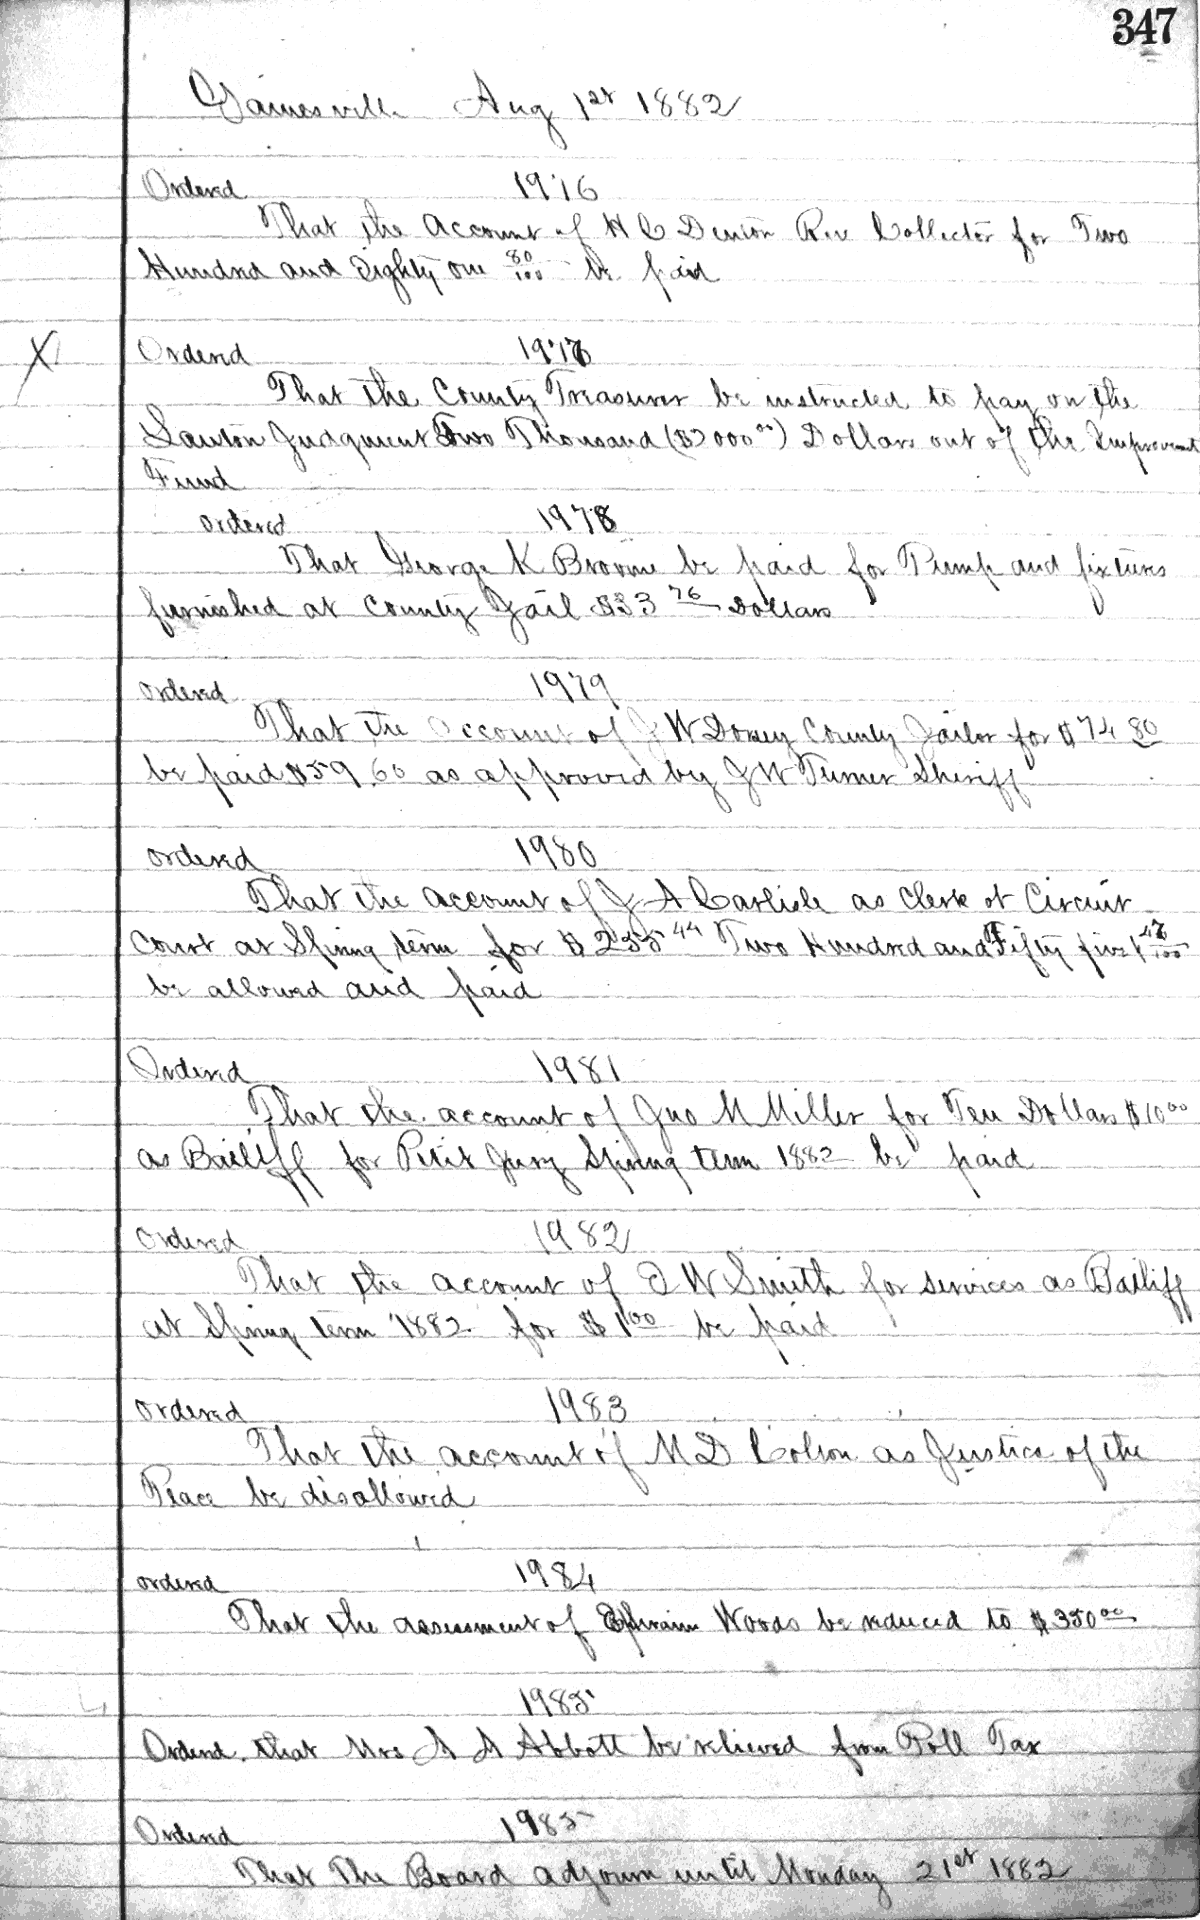 347
Gainesville Aug 1st 1882
Ordered 1976
That the Account of H C Denton Rev Collector for Two
Hundred and Eighty one 80/100 be paid
X Ordered 1977
That the County Treasurer be instructed to pay on the
Judgment Two Thousand ($2000 00) Dollars out of the Improvement
Fund
ordered 1978
That George K Broome be paid for Pump and fixtures
furnished at County Jail $33 76 Dollars
ordered 1979
That the account of J W Dorsey County Jailor for $74 80
be paid $59.60 as approved by J W Turner Sheriff
ordered 1980
That the account of J A Carlisle as Clerk of Circuit
Court at Spring term for $255 44 Two Hundred and Fifty five
be allowed and paid
Ordered 1981
That the account of Jno M Miller for Ten Dollars $10 00
as Bailiff for Petit Jury Spring term 1882 be paid
Ordered 1982
That the account of W Smith for services as Bailiff
at Spring term 1882 for $1 00 be paid
ordered 1983
That the account of M D Colson as Justice of the
Peace be disallowed
ordered 1984
That the assessment of Ephraim Woods be reduced to $350 00
1985
Ordered that Mrs A A Abbott be relieved from Poll Tax
Ordered 1985
That The Board adjourn until Monday 21st 1882